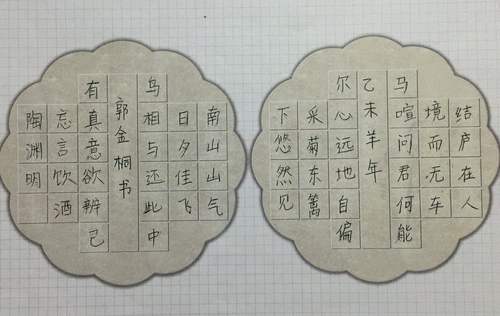 结庐在人
境而无车
马喧问君何能
乙未羊年
尔心远地自偏
采菊东篱
下悠然见
南山山气
日夕佳飞
鸟相与还此中
郭金桐书
有真意欲辨己
忘言饮酒
陶渊明